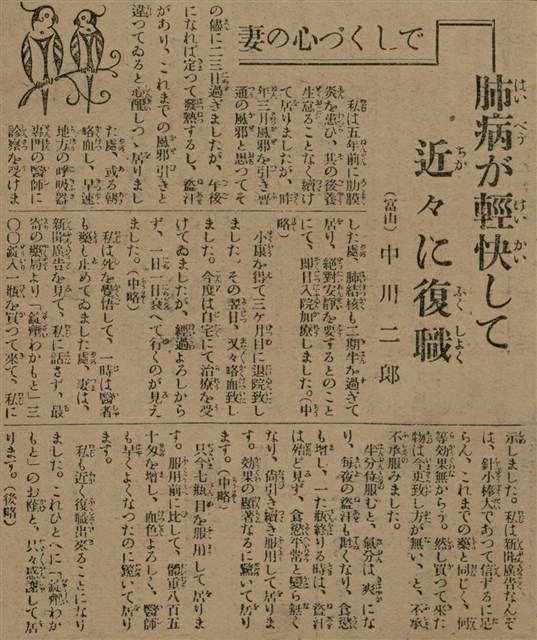 肺病が輕快して
近々に復職
(富山) 中川二郎
妻の心づくしで
私は五年前に肋膜
炎を患ひ、其の後養
生怠ることなく續け
て居りましたが、昨
年三月風邪を引き普
通の風邪と思つてそ
の儘に二三日過ぎましたが、午後
になれば定つて發熱するし、盜汗
があり、これまでの風邪引きと
違つてゐると心配しつゝ居りまし
た處、或る朝
咯血し、早速
地方の呼吸器
專門の醫師に
診察を受けま
した處、肺結核も二期半を過ぎて
居り、絶對安靜を要するとのこと
にて、即日入院加療しました。(中
略)
小康を得て三ケ月目に退院致し
ました。その翌日、又々咯血致し
ました。今度は自宅にて治療を受
けてゐましたが、經過よろしから
ず、一日一日衰へて行くのが見え
ました。(中略)
私は死を覺悟して、一時は醫者
も藥も止めてゐました處、妻は、
新聞廣告を見て、私に話さず、最
寄の藥局より「錠劑わかもと」三
〇〇錠入一瓶を買つて來て、私に
示しました。私は新聞廣告なんぞ
は、針小棒大であつて信ずるに足
らん、これまでの藥と同じく、何
等効果無からう。然し買つて來た
物は今更致し方が無い、と、不承
不承服みました。
半分位服むと、氣分は爽にな
り、毎夜の盜汗も無くなり、食慾
も增し、一瓶終りる時は、盜汗
は殆ど見ず、食慾平常と變ら無く
なり、尚引き續き服用して居りま
す。効果の顯著なるに驚いて居り
ます。(中略)
只今七瓶目を服用して居りま
す。服用前に比して、體重八百五
十匁を增し、血色よろしく、醫師
も早くよくなつたのに驚いて居り
ます。
私も近く復職出來ることになり
ました。これひとへに「錠劑わか
もと」のお蔭と、只々感謝して居
ります。(後略)